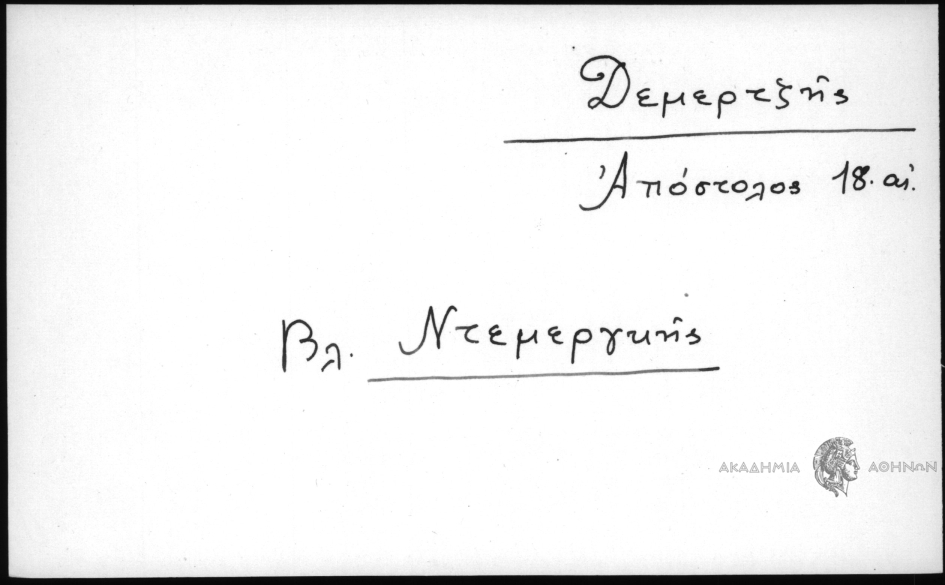 Δεμερτζῆς
Ἀπόστολος 18. αἰ.
Βλ. Ντεμεργκῆς
ΑΚΑΔΗΜΙΑ ΑΘΗΝΩΝ